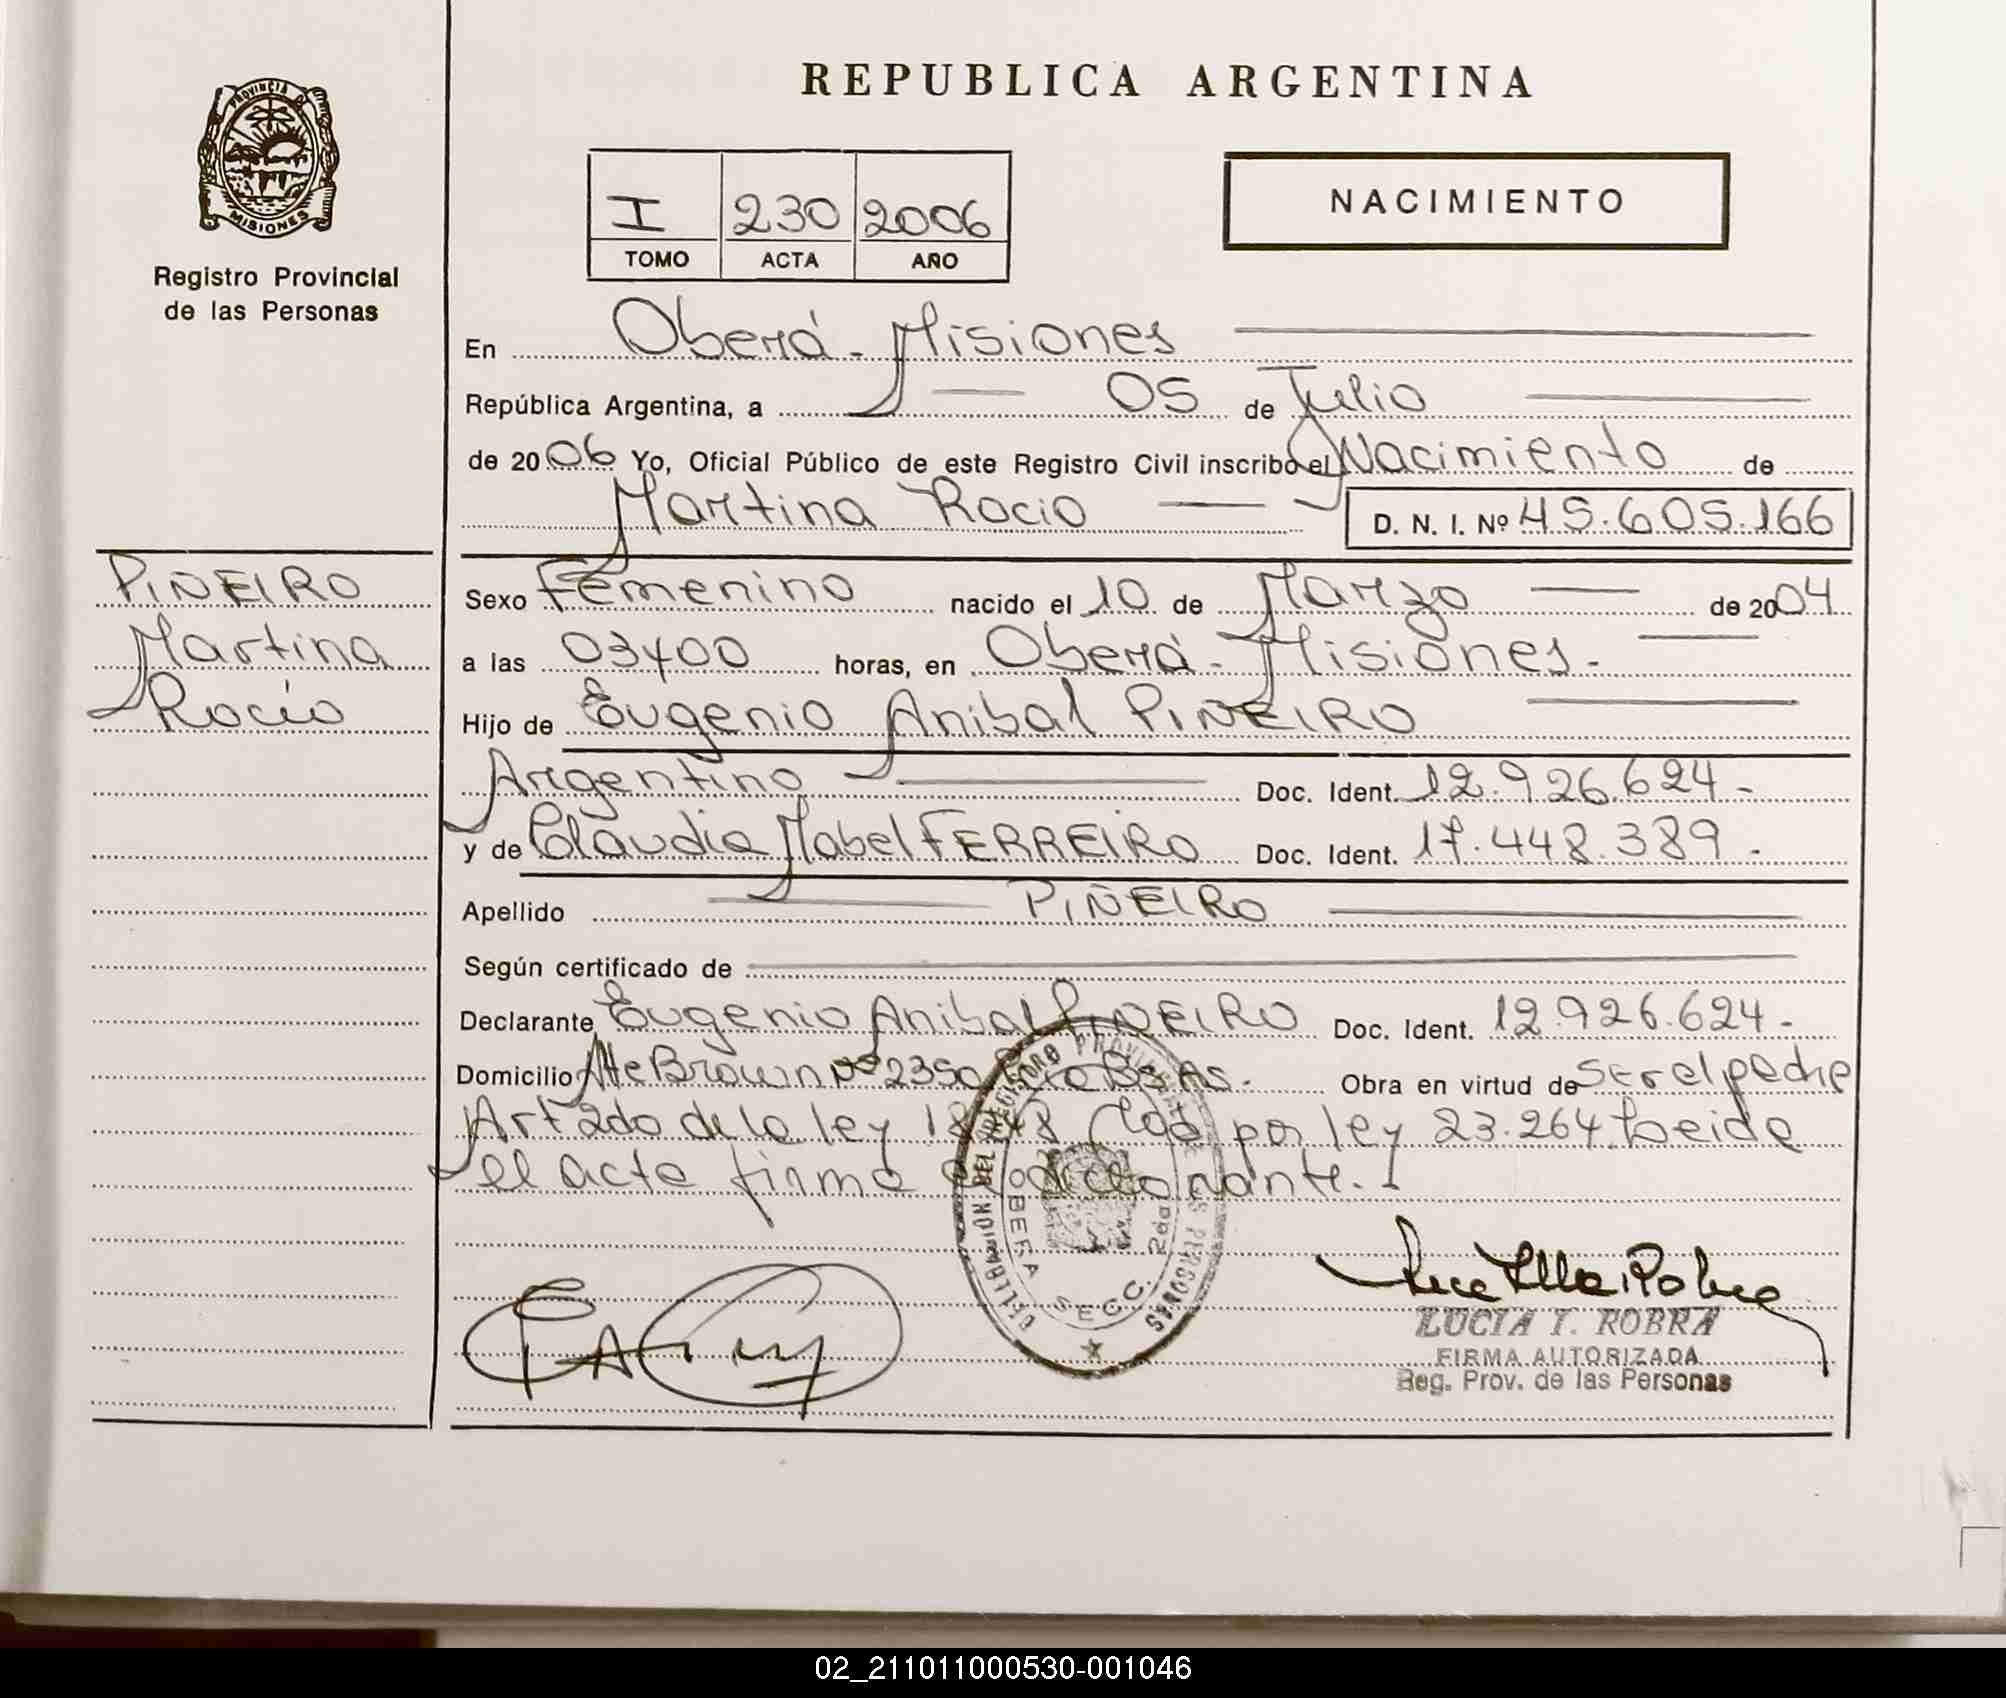 PROVINCIA D
MISIONES
Registro Provincial
de las Personas
REPUBLICA ARGENTINA
I 230 2006
TOMO ACTA AÑO
NACIMIENTO
En Oberá - Misiones
República Argentina, a 05 de Julio
de 2006 Yo, Oficial Público de este Registro Civil inscribo el Nacimiento de
Martina Rocio D. N. I. Nº 45.605.166
PIÑEIRO
Martina
Rocio
Sexo Femenino nacido el 10 de Marzo de 2004
a las 03y00 horas, en Oberá - Misiones.-
Hijo de Eugenio Anibal PIÑEIRO
Argentino Doc. Ident. 12.926.624-
y de Claudia Mabel FERREIRO Doc. Ident. 17.448.389.
Apellido PIÑEIRO
Según certificado de
Declarante Eugenio Anibal PIÑEIRO Doc. Ident. 12.926.624-
Domicilio Alte Brown Nº 2350 BsAs. Obra en virtud de ser el padre
Art 2do de la ley 18248 Mod por ley 23.264 Leida
el acta firma declarante.
DELEGACION DEL REGISTRO PROVINCIAL DE LAS PERSONAS
OBERA SECC. 2da
LUCIA T. ROBRA
FIRMA AUTORIZADA
Reg. Prov. de las Personas
02_211011000530-001046